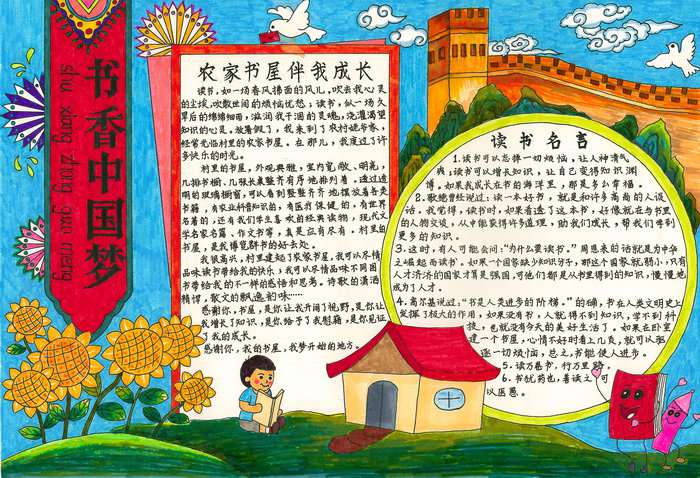 书香中国梦
shu xiang zhong guo meng
农家书屋伴我成长
读书,如一场春风拂面的风儿,吹去我心灵
的尘埃,吹散世间的烦恼忧愁,读书,似一场久
旱后的绵绵细雨,滋润我干涸的灵魂,浇灌渴望
知识的心灵。放暑假了,我来到了农村姥爷家,
经常光临村里的农家书屋。在那儿,我度过了许
多快乐的时光。
村里的书屋,外观典雅,室内宽敞、明亮,
几排书橱、几张长桌整齐有序地排列着。透过透
明的玻璃橱窗,可以看到整整齐齐地摆放着各类
书籍,有农业科普知识的,有医药保健的,有世界
名著的,还有我们学生喜欢的经典读物,现代文
学名家名篇、作文书等,真是应有尽有。村里的
书屋,是我博览群书的好去处。
我很高兴,村里建起了农家书屋,我可以尽情
品味读书带给我的快乐,我可以尽情品味不同图
书带给我的不一样的感悟和思考。诗歌的潇洒
精悍,散文的飘逸韵味……
感谢你,书屋,是你让我开阔了视野,是你让
我增长了知识,是你给予了我慰藉,是你见证
了我的成长。
感谢你,我的书屋,我梦开始的地方。
读书名言
1.读书可以忘掉一切烦恼,让人神清气
爽;读书可以增长知识,让自己变得知识渊
博。如果我成长在书的海洋里,那是多么幸福。
2.歌德曾经说过:读一本好书,就是和许多高尚的人谈
话。我觉得,读书时,如果看透了这本书,好像就在与书里
的人物交谈,从中能家得许多道理,助我们成长,帮我们得到
更多的知识。
3.这时,有人可能会问:“为什么要读书。”周恩来的话就是为中华
之崛起而读书。如果一个国家缺少知识分子,那这个国家就弱小,只有
人才济济的国家才算是强国,可他们都是从书里得到的知识,慢慢地
成为了人才。
4.高尔基说过:“书是人类进步的阶梯。”的确,书在人类文明史上
发挥了极大的作用,如果没有书,人就得不到知识,学不到科
技,也就没有今天的美好生活了。如果在卧室
建一个书屋,心情不好时看上几页,就可以驱
逐一切烦恼,总之,书能使人进步。
5.读万卷书,行万里路。
6.书犹药也,善读之可
以医愚。